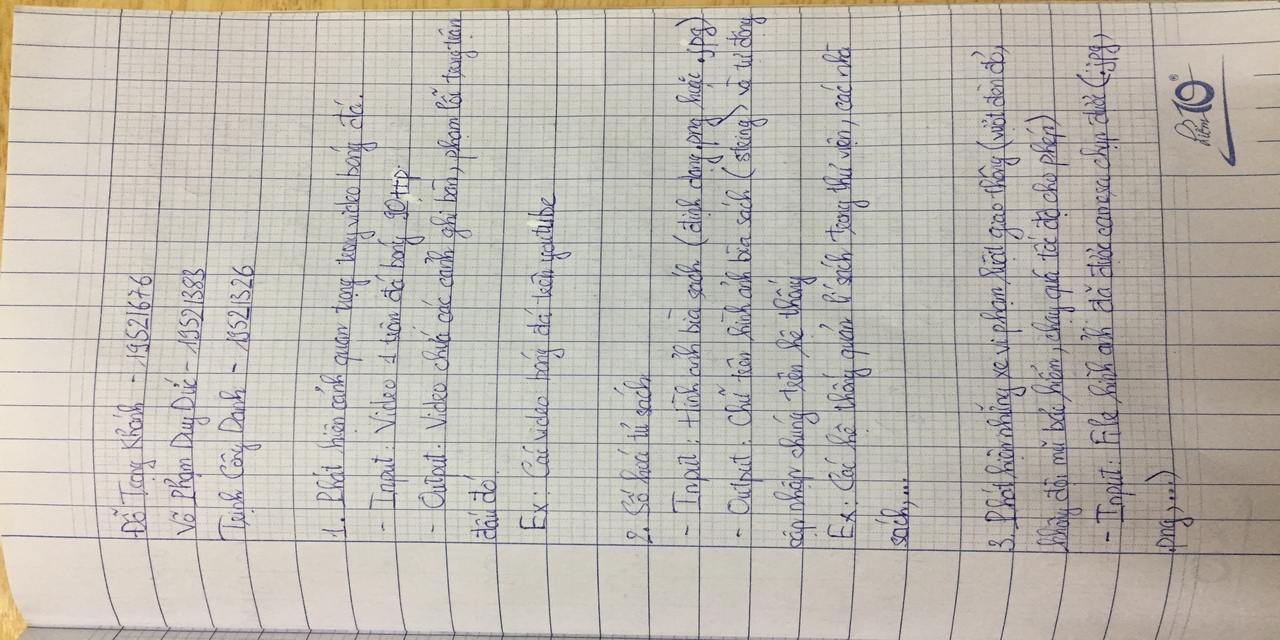 Đỗ Trọng Khánh - 19521676
Võ Phạm Duy Đức - 19521383
Trịnh Công Danh - 19521326
1. Phát hiện cảnh quan trọng trong video bóng đá.
- Input: Video 1 trận đá bóng 90++p.
- Output: Video chứa các cảnh ghi bàn, phạm lỗi trong trận
đấu đó
Ex: Các video bóng đá trên youtube
2. Số hoá tủ sách
- Input: Hình ảnh bìa sách (định dạng .png hoặc .jpg)
- Output: Chữ trên hình ảnh bìa sách (string) và tự động
cập nhập chúng trên hệ thống
Ex: Các hệ thống quản lí sách trong thư viện, các nhà
sách,...
3. Phát hiện những xe vi phạm luật giao thông (vượt đèn đỏ,
không đội mũ bảo hiểm, chạy quá tốc độ cho phép)
- Input: File hình ảnh đã được camera chụp được (.jpg,
.png,...)
Điểm 10